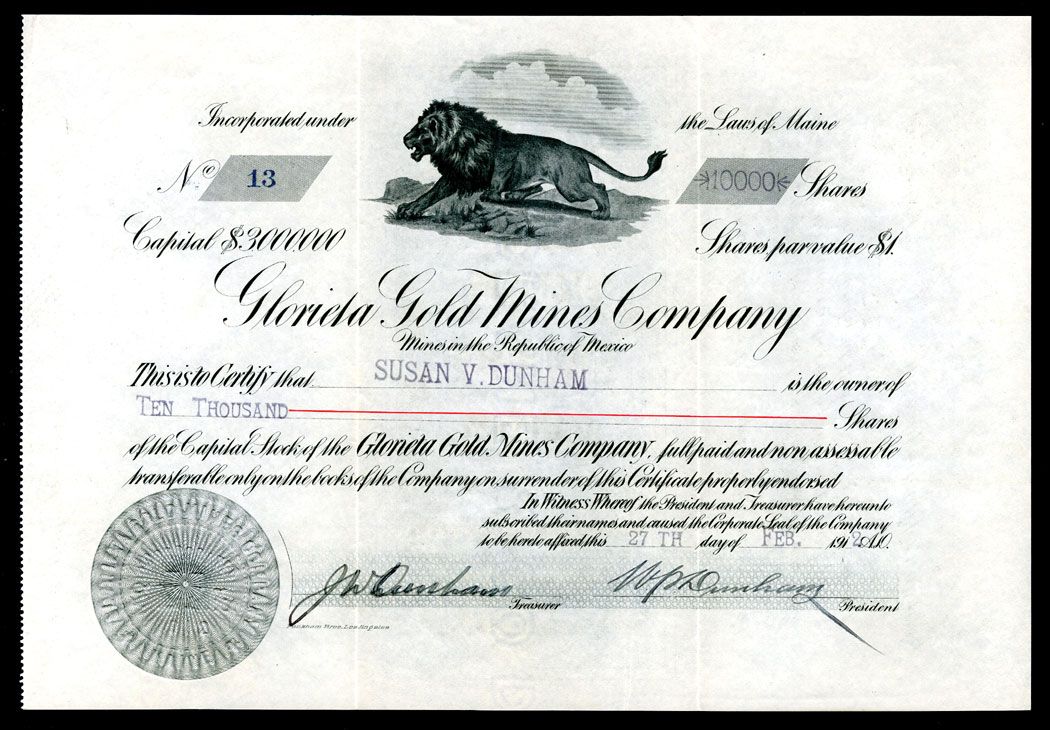 Incorporated under the Laws of Maine
No 13
10000 Shares
Capital $3000000
Shares, par value $1.
Glorieta Gold Mines Company
Mines in the Republic of Mexico
This is to Certify that SUSAN V. DUNHAM is the owner of
TEN THOUSAND Shares
of the Capital Stock of the Glorieta Gold Mines Company, full paid and non assessable
transferable only on the books of the Company on surrender of this Certificate properly endorsed
In Witness Whereof the President and Treasurer have hereunto
subscribed their names and caused the Corporate Seal of the Company
to be hereto affixed this 27 TH day of FEB. 1912 A.D.
J W Dunham W P Dunham
Treasurer President
Bros. Los Angeles